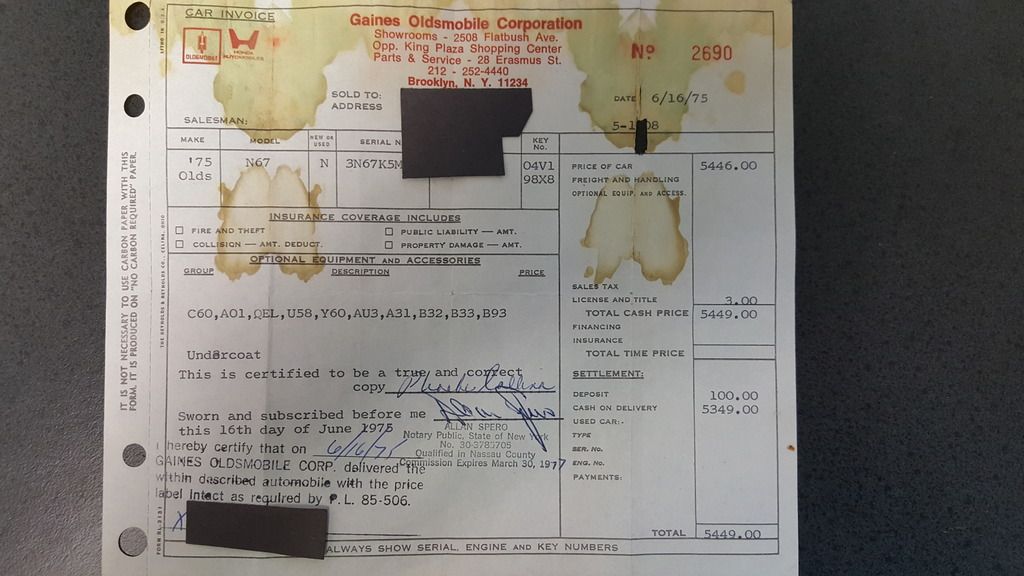 CAR INVOICE
OLDSMOBILE
HONDA AUTOMOBILES
Gaines Oldsmobile Corporation
Showrooms - 2508 Flatbush Ave.
Opp. King Plaza Shopping Center
Parts & Service - 28 Erasmus St.
212 - 252-4440
Brooklyn, N. Y. 11234
No. 2690
LITHO IN U.S.A.
SOLD TO:
ADDRESS
DATE 6/16/75
SALESMAN:
MAKE MODEL NEW OR USED SERIAL N KEY No.
'75 N67 N 3N67K5M 04V1
Olds 98X8
PRICE OF CAR 5446.00
FREIGHT AND HANDLING
OPTIONAL EQUIP. AND ACCESS.
INSURANCE COVERAGE INCLUDES
FIRE AND THEFT PUBLIC LIABILITY — AMT.
COLLISION — AMT. DEDUCT. PROPERTY DAMAGE — AMT.
OPTIONAL EQUIPMENT AND ACCESSORIES
GROUP DESCRIPTION PRICE
C60,A01,QEL,U58,Y60,AU3,A31,B32,B33,B93
Undercoat
This is certified to be a true and correct
copy
Sworn and subscribed before me
this 16th day of June 1975
ALLAN SPERO
Notary Public, State of New York
No. 30-3785705
Qualified in Nassau County
Commission Expires March 30, 1977
I hereby certify that on 6/16/75
GAINES OLDSMOBILE CORP. delivered the
within described automobile with the price
label intact as required by P.L. 85-506.
X
ALWAYS SHOW SERIAL, ENGINE AND KEY NUMBERS
SALES TAX
LICENSE AND TITLE 3.00
TOTAL CASH PRICE 5449.00
FINANCING
INSURANCE
TOTAL TIME PRICE
SETTLEMENT:
DEPOSIT 100.00
CASH ON DELIVERY 5349.00
USED CAR:-
TYPE
SER. NO.
ENG. NO.
PAYMENTS:
TOTAL 5449.00
IT IS NOT NECESSARY TO USE CARBON PAPER WITH THIS
FORM. IT IS PRODUCED ON "NO CARBON REQUIRED" PAPER.
THE REYNOLDS & REYNOLDS CO., CELINA, OHIO